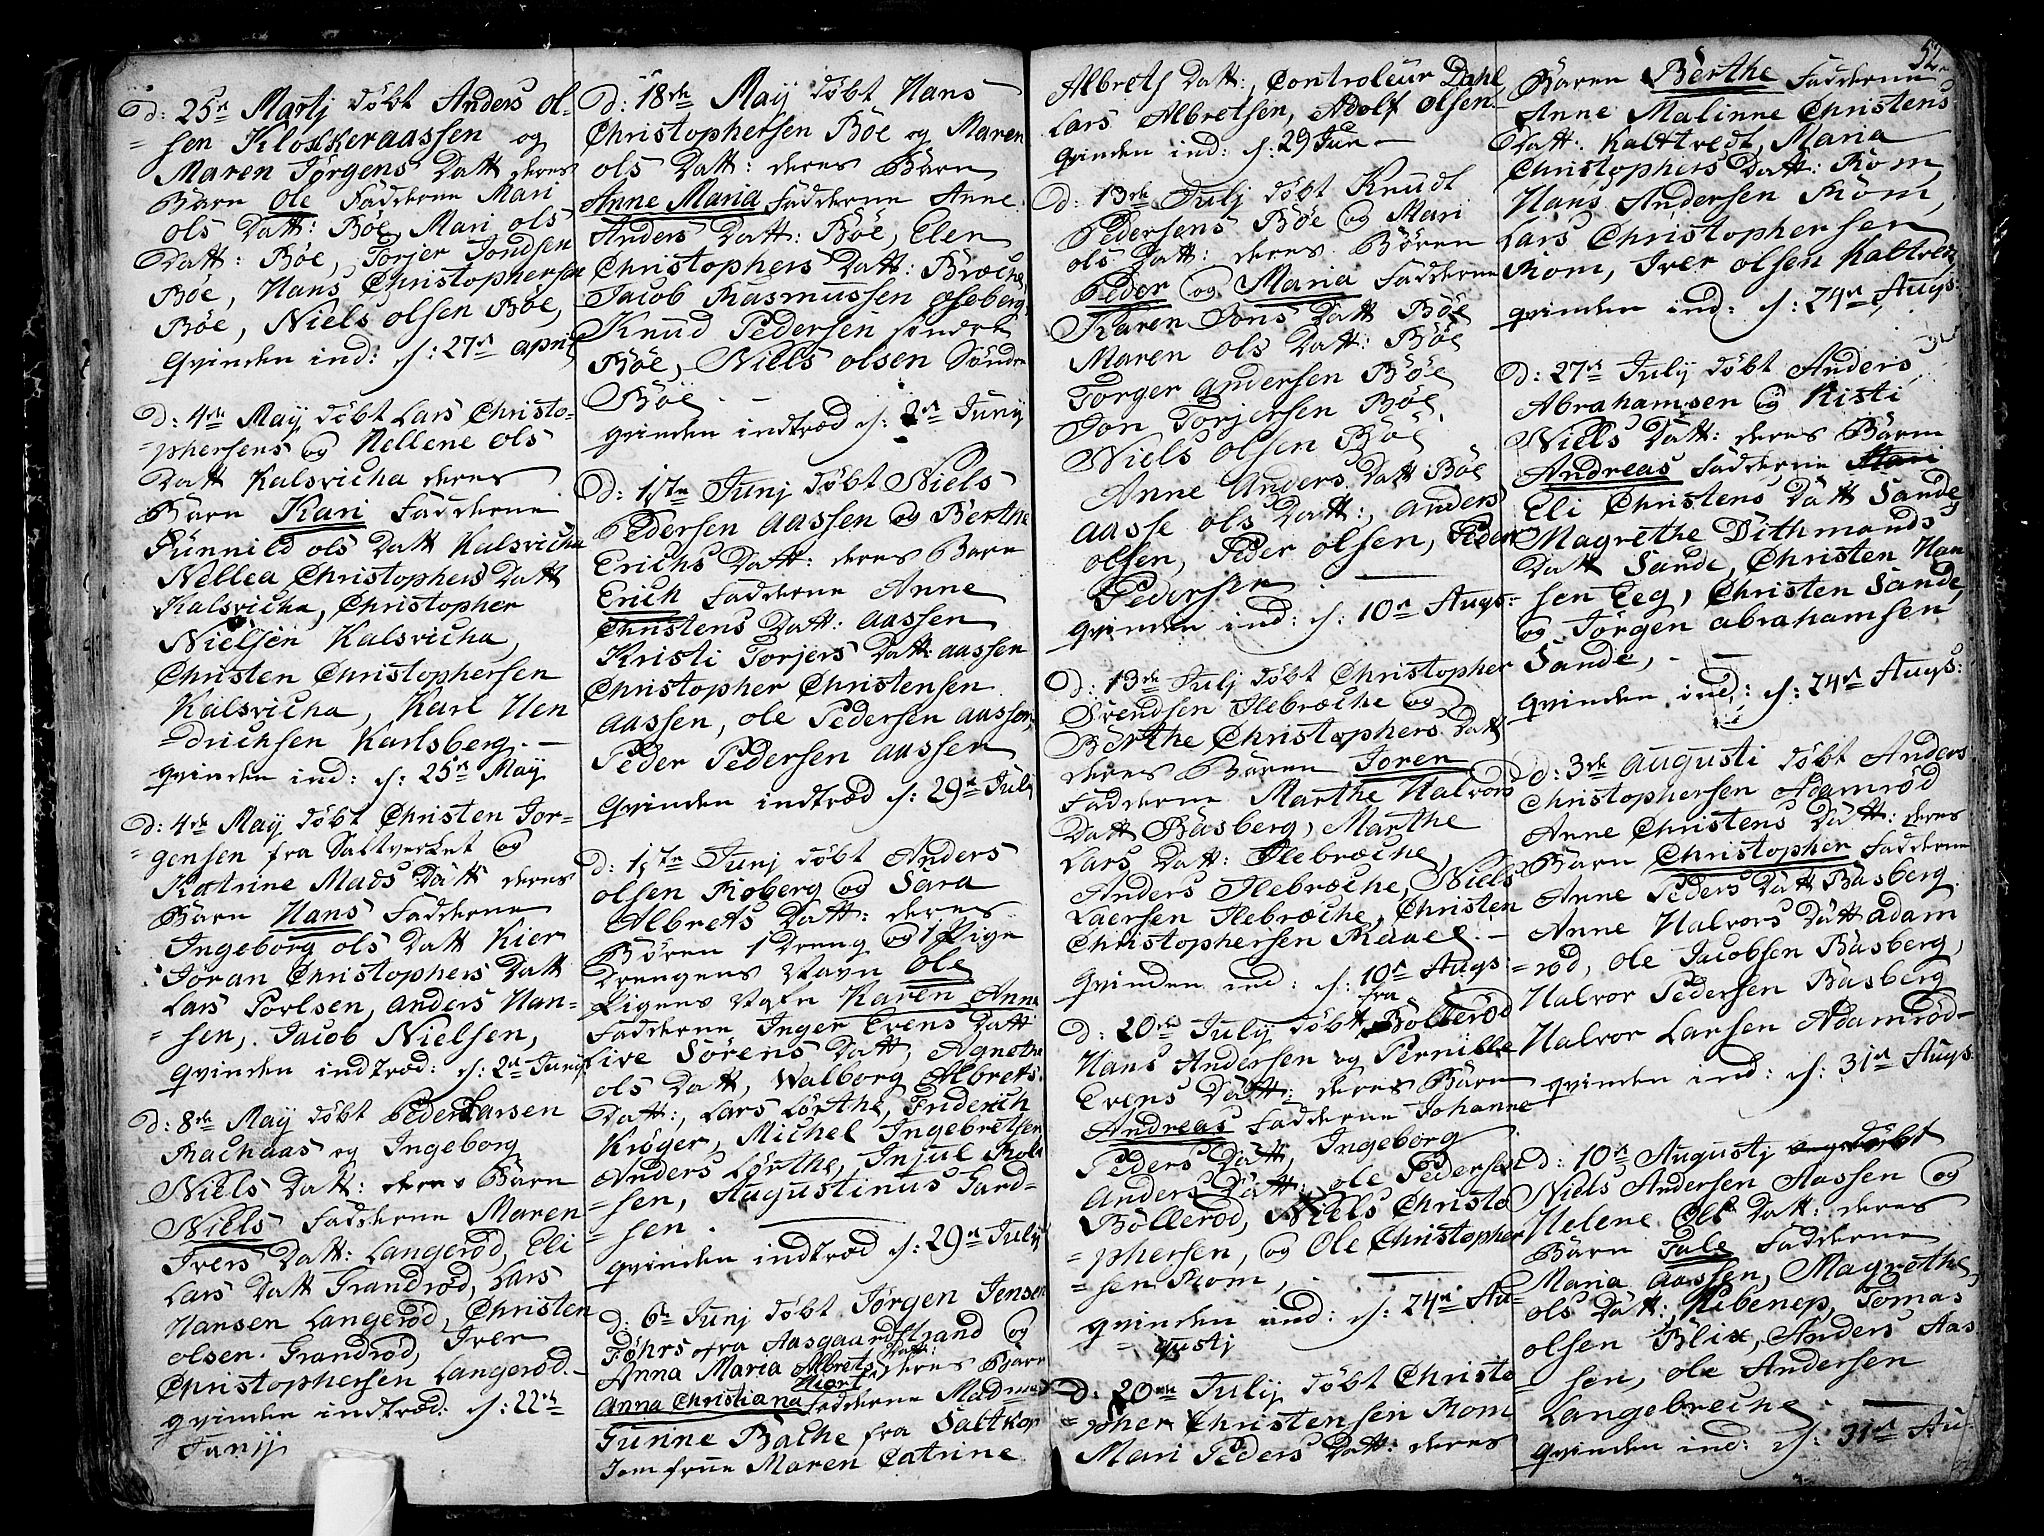 52
d: 25n Martj døbt Anders ol-
= sen Klokkeraassen og
Maren Jørgens Datt deres
Barn Ole Fadderne Mari
ols Datt: Bøe, Mari ols
Datt: Bøe, Torjer Jondsen
Bøe, Hans Christophersen
Bøe, Niels olsen Bøe,
qvinden ind: d: 27n april
d: 4de Maÿ døbt Lars Christo-
=phersens og Hellene ols
Datt Kalsvicha deres
Barn Kari Fadderne
Gunnild ols Datt Kalsvicha
Nellea Christophers Datt
Kalsvicha, Christopher
Nielsen Kalsvicha,
Christen Christophersen
Kalsvicha, Karl Hen
=drichsen Karlsberg. —
qvinden ind: d: 25n Maÿ
d: 4de Maÿ døbt Christen Jør-
= gensen fra Saltverket og
Katrine Mads Datt deres
Barn Hans Fadderne
Ingeborg ols Datt Kier
Joran Christophers Datt
Lars Porlsen, anders Han-
= sen, Jacob Nielsen,
qvinden indtræd: d: 2n Junÿ
d: 8de Maÿ døbt Peder Larsen
Rachaas og Ingeborg
Niels Datt: deres Barn
Niels Fadderne Maren
Ivers Datt: Langerød, Eli
Lars Datt Grandrød, Lars
Hansen Langerød, Christen
olsen. Grandrød, Iver
Christophersen Langerød. -
qvinden indtræd: d: 22de
Junÿ
d: 18de Maÿ døbt Hans
Christophersen Bøe og Maren
ols Datt: deres Barn
Anne Maria Fadderne Anne
Anders Datt: Bøe, Elen
Christophers Datt: Bræche,
Jacob Rasmussen oseberg,
Knud Pedersen søndre
Bøe, Niels olsen Søndre
Bøe - —
qvinden indtræd d: 2n Junÿ
d: 1ste Junj døbt Niels
Pedersen aassen og Berthe
Erichs Datt: deres Barn
Erich Fadderne Anne
Christens Datt: aassen
Kristi Torjers Datt: aassen
Christopher Christensen
aassen, ole Pedersen aassen,
Peder Pedersen aassen
qvinden indtræd d: 29n Julj
d: 1ste Junj døbt Anders
olsen Roberg og Sara
Albrets Datt: deres
Børen 1 Dreng og 1 Pige
Drengens Navn Ole
Pigens Nafn Karen Anne
Fadderne Inger Evens Datt
Live Sørens Datt, Agnethe
ols Datt, Walborg Albrets
Datt:, Lars Lørthe, Friderich
Krøger, Michel Ingebretsen
Anders Lørthe, Injul Rols
= sen, Augustinus Gard-
= sen.
qvinden indtræd d: 29n Julÿ
d: 6te Junj døbt Jørgen Jensen
Føhrs fra Aasgaardstrand og
Anna Maria Albrets Datt:
Hiort deres Barn
Anna Christiana Fadderne Madme
Gunne Bache fra Saltkop
Jomfrue Maren Catrine
Albrets Datt:, Controleur Dahl,
Lars Albretsen, Adolf olsen. -
qvinden ind: d: 29 Jun -
d: 13de Julj døbt Knudt
Pedersens Bøe og Mari
ols Datt: deres Børen
Peder og Maria Fadderne
Karen Jons Datt Bøe
Maren ols Datt: Bøe
Torger andersen Bøe
Jon Torjersen Bøe
Niels olsen Bøe
Anne Anders Datt Bøe
aasse ols Datt:, anders
olsen, Peder olsen, Peder
Pedersen
qvinden ind: d: 10n Augs:
d: 13de Julj døbt Christopher
Svendsen Ilebræche og
Berthe Christophers Datt
deres Barn Joren
Fadderne Marthe Halvors
Datt Basberg, Marthe
Lars Datt: Ilebræche,
Anders Ilebræche, Niels
Laersen Ilebræche, Christen
Christophersen Raael. -
qvinden ind: d: 10n Augs:
d: 20de Julÿ døbt fra Bøllerød
Hans Andersen og Pernille
Evens Datt: deres Barn
Andreas Fadderne Johanne
Peders Datt, Ingeborg
Anders Datt: ole Pedersen
Bøllerød, Niels Christo
=phersen, og Ole Christopher
= sen Rom,
qvinden ind: d: 24n Au-
= gustj
d: 20de Julÿ døbt Christo
=pher Christensen Rom
Mari Peders Datt: deres
Baren Berthe Fadderne
Anne Malinne Christens
Datt: Kalttvedt, Maria
Christophers Datt: Rom,
Hans Andersen Rom,
Lars Christophersen
Rom, Iver olsen Kaltvet
qvinden ind: d: 24n Augs:
d: 27n Julÿ døbt Anders
Abrahamsen og Kisti
Niels Datt: deres Barn
Andreas Fadderne Mari
Eli Christens Datt Sande,
Magrethe Dithmands
Datt Sande, Christen Han
sen Eeg, Christen Sande,
og Jørgen abrahamsen
Sande, -
qvinden ind: d: 24n Augs:
d: 3de augusti døbt Anders
Christophersen Adamrød
Anne Christens Datt: deres
Barn Christopher Fadderne
Anne Peders Datt Basberg.
Anne Halvors Datt adam
=rød, ole Jacobsen Basberg,
Halvor Pedersen Basberg
Halvor Larsen Adamrød
qvinden ind: d: 31n Augs:
d: 10n Augustj døbt
Niels Andersen Aassen og
Helene Ols Datt: deres
Barn Tale Fadderne
Maria aassen, Magrethe
ols Datt: Kibenep, Tomas
olsen Blix, Anders Aas
= sen, ole Andersen
Langebreche. -
qvinden ind: d: 31n Au-